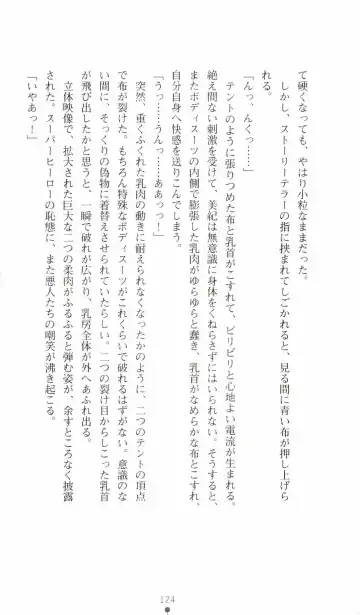 て硬くなっても、やはり小粒なままだった。
しかし、ストーリーテラーの指に挟まれてしごかれると、見る間に青い布が押し上げら
れる。
「んっ、んくっ……」
テントのように張りつめた布と乳首がこすれて、ピリピリと心地よい電流が生まれる。
絶え間ない刺激を受けて、美紀は無意識に身体をくねらさずにはいられない。そうすると、
またボディスーツの内側で膨張した乳肉がゆらゆらと蠢き、乳首がなめらかな布とこすれ、
自分自身へ快感を送りこんでしまう。
「うっ……うんっ……ああっ！」
突然、重くふくれた乳肉の動きに耐えられなくなったかのように、二つのテントの頂点
で布が裂けた。もちろん特殊なボディスーツがこれくらいで破れるはずがない。意識のな
い間に、そっくりの偽物に着替えさせられていたらしい。二つの裂け目からしこった乳首
が飛び出したかと思うと、一瞬で破れが広がり、乳房全体が外へあふれ出る。
立体映像で、拡大された巨大な二つの柔肉がふるふると弾む姿が、余すところなく披露
された。スーパーヒーローの恥態に、また悪人たちの嘲笑が沸き起こる。
「いやあっ！」
124